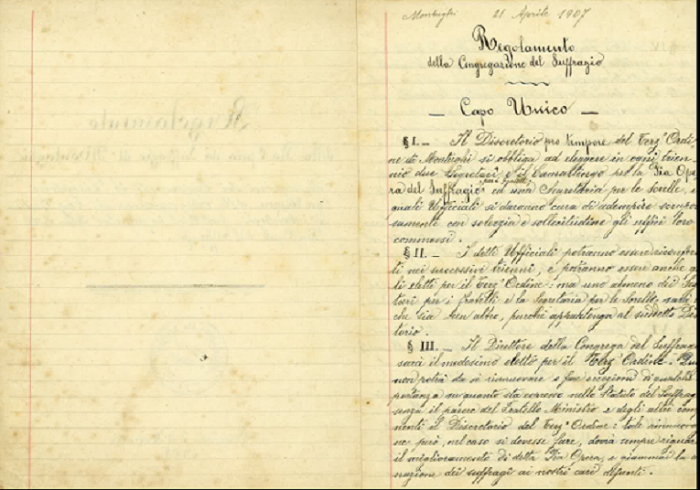 Montughi 21 Aprile 1907
Regolamento
della Congregazione del Suffragio
— Capo Unico —
§ I. — Il Discretorio pro tempore del Terz' Ordi
ne di Montughi si obbliga ad eleggere in ogni trien
nio due Segretari e il Camarlingo per la Pia Ope
ra del Suffragio per i fratelli ed una Segretaria per le sorelle,
quali Ufficiali si daranno cura di adempire scrupo
samente con solerzia e sollecitudine gli uffici loro
commessi.
§ II. — I detti Ufficiali potranno essere
ti nei successivi trienni, e potranno essere anche
di eletti per il Terz' Ordine: ma uno almeno dei
tari per i fratelli e la Segretaria per le Sorelle
che sia ben altro, purchè appartenga al suddetto Di
torio.
§ III. — Il Direttore della Congrega del Suffrag
sarà il medesimo eletto per il Terz' Ordine.
non potrà da sè rinnovare o fare
portanza su quanto sta espresso nello Statuto del Suffrag
senza il parere del fratello Ministro e degli altri com
nenti il Discretorio del Terz' Ordine: tale rinnova
ne però, nel caso si dovesse fare, dovrà sempre
il miglioramento di detta Pia Opera, e giammai la
nazione dei suffragi ai nostri cari defunti.